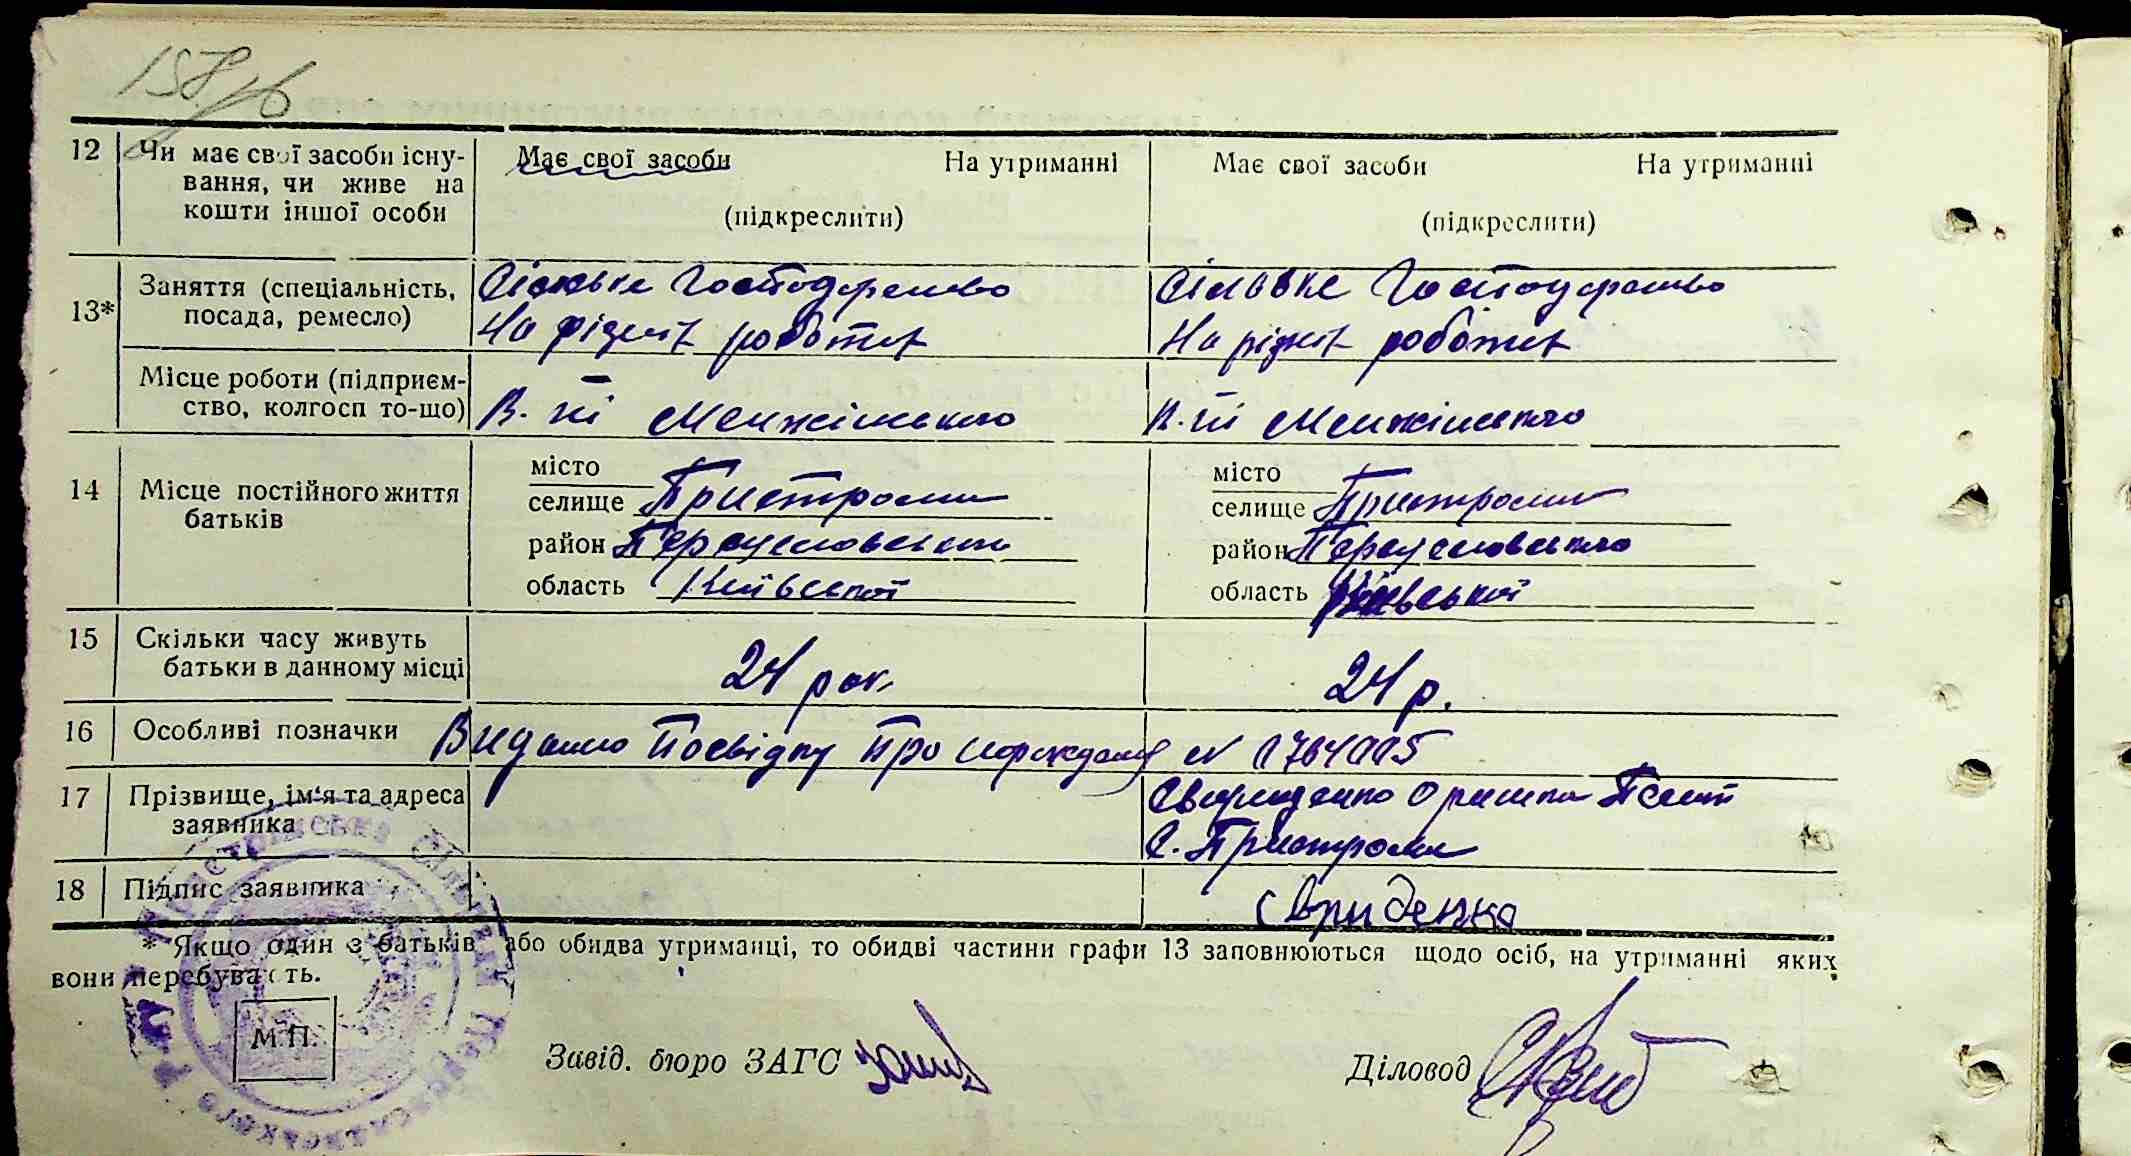 157/16
12 Чи має свої засоби існу- Має свої засоби На утриманні Має свої засоби На утриманні
вання, чи живе на
кошти іншої особи (підкреслити) (підкреслити)
13* Заняття (спеціальність, Сільське Господарство Сільське Господарство
посада, ремесло) На різних роботах На різних роботах
Місце роботи (підприєм-
ство, колгосп то-що) Менжінського Менжінського
14 Місце постійного життя місто місто
батьків селище Пристроми селище Пристроми
район Переяславський район Переяславського
область Київської область Київської
15 Скільки часу живуть
батьки в данному місці 24 рок. 24 р.
16 Особливі позначки Видано Посвідку про народження N
17 Прізвище, ім'я та адреса Свириденко Оришка
заявника с. Пристроми
18 Підпис заявника Свриденко
* Якщо один з батьків або обидва утриманці, то обидві частини графи 13 заповнюються щодо осіб, на утриманні яких
вони перебувають.
М.П.
Завід. бюро ЗАГС Діловод